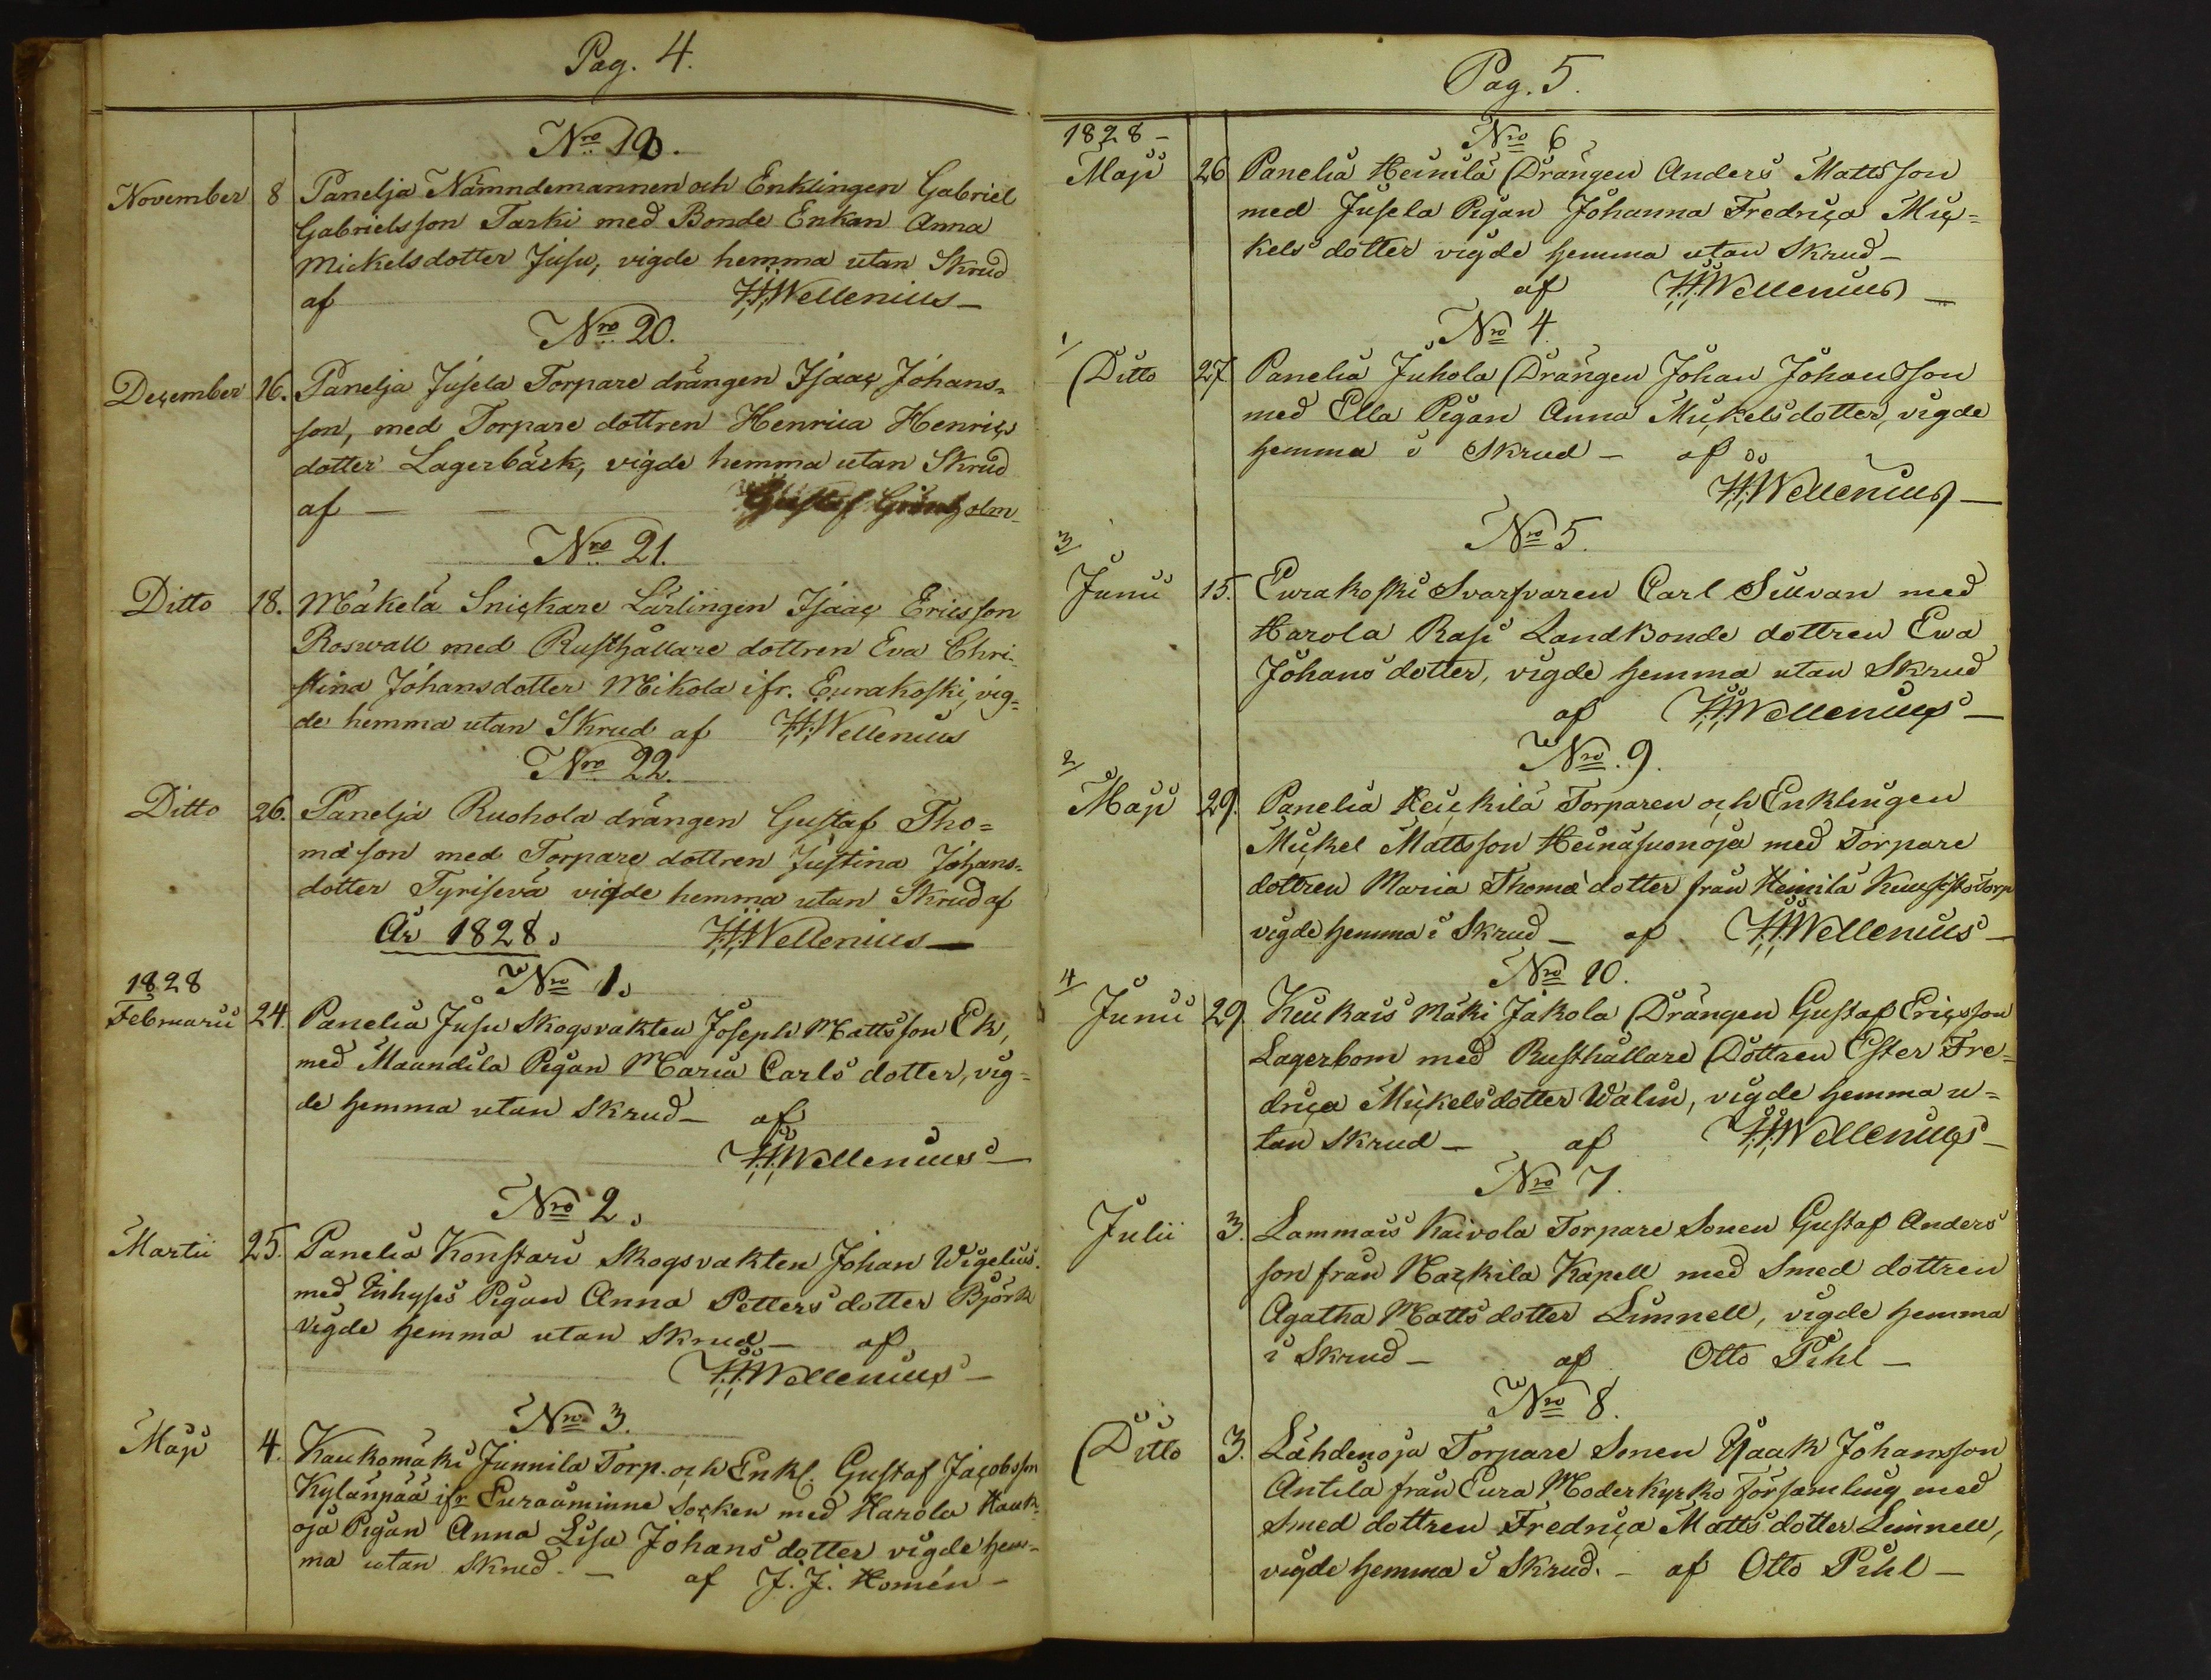 Pag. 4.
Nro 19.
November 8 Panelja Nämndemannen och Enklingen Gabriel
Gabrielsson Tarki med Bonde Enkan Anna
Mickelsdotter Jusu, vigde hemma utan Skrud
af H.H. Wellenius
Nro 20.
December 16. Panelja Jusela Torpare drängen Isaac Johans-
son, med Torpare dottren Henrica Henrics
dotter Lagerbäck, vigde hemma utan Skrud
af Gustaf Grönholm
Nro 21.
Ditto 18. Mäkelä Snickare Lärlingen Isaac Ericsson
Roswall med Rusthållare dottren Eva Chri-
stina Johansdotter Mikola ifr. Eurakoski, vig-
de hemma utan Skrud af H.H. Wellenius
Nro 22.
Ditto 26. Panelja Ruohola drängen Gustaf Tho-
mæson med Torpare dottren Justina Johans-
dotter Tyrisevä vigde hemma utan Skrud af
År 1828. H.H. Wellenius
Nro 1.
1828
Februarii 24. Panelia Jusu Skogsvakten Joseph Mattsson Ek,
med Maandila Pigan Maria Carls dotter, vig-
de hemma utan Skrud - af
H.H. Wellenius
Nro 2.
Martii 25. Panelia Konstari Skogsvakten Johan Wigelius.
med Inhyses Pigan Anna Petters dotter Björk
vigde hemma utan Skrud - af
H.H. Wellenius
Nro 3.
Maji 4. Kaukomäki Junnila Torp. och Enkl. Gustaf Jacobsson
Kylänpää ifr Euraåminne Socken med Harola Hauk-
oja Pigan Anna Lisa Johans dotter vigde hem-
ma utan Skrud. - af J. J. Homén -
Pag. 5.
1828 - Nro 6
Maji 26 Panelia Heinilä Drängen Anders Mattsson
med Jusela Pigan Johanna Fredrica Mic-
kels dotter vigde hemma utan Skrud -
af H.H. Wellenius
Nro 4.
1/
Ditto 27 Panelia Juhola Drängen Johan Johansson
med Ella Pigan Anna Mickelsdotter, vigde
hemma i Skrud - af
H.H. Wellenius
Nro 5.
3/
Junii 15. Eurakoski Svarfvaren Carl Sillvan med
Harola Rasi Landbonde dottren Ewa
Johans dotter, vigde hemma utan Skrud
af H.H. Wellenius
Nro 9.
2/
Maji 29. Panelia Heickilä Torparen och Enklingen
Mickel Mattsson Heinäsuonoja med Torpare
dottren Maria Thomæ dotter från Heinilä Torp
vigde hemma i Skrud - af H.H. Wellenius
Nro 10.
4/
Junii 29. Kiukais Mäki Jakola Drängen Gustaf Ericsson
Lagerbom med Rusthållare Dottren Ester Fre-
drica Mickelsdotter Walin, vigde hemma u-
tan Skrud - af H.H. Wellenius
Nro 7.
Julii 3. Lammais Kaivola Torpare Sonen Gustaf Anders
son från Kapell med Smed dottren
Agatha Matts dotter Linnell, vigde hemma
i Skrud - af Otto Pihl -
Nro 8.
Ditto 3. Lähdenoja Torpare Sonen Isaak Johansson
Antila från Eura Moderkyrko Församling med
Smed dottren Fredrica Matts dotter Linnell,
vigde hemma i Skrud. - af Otto Pihl -